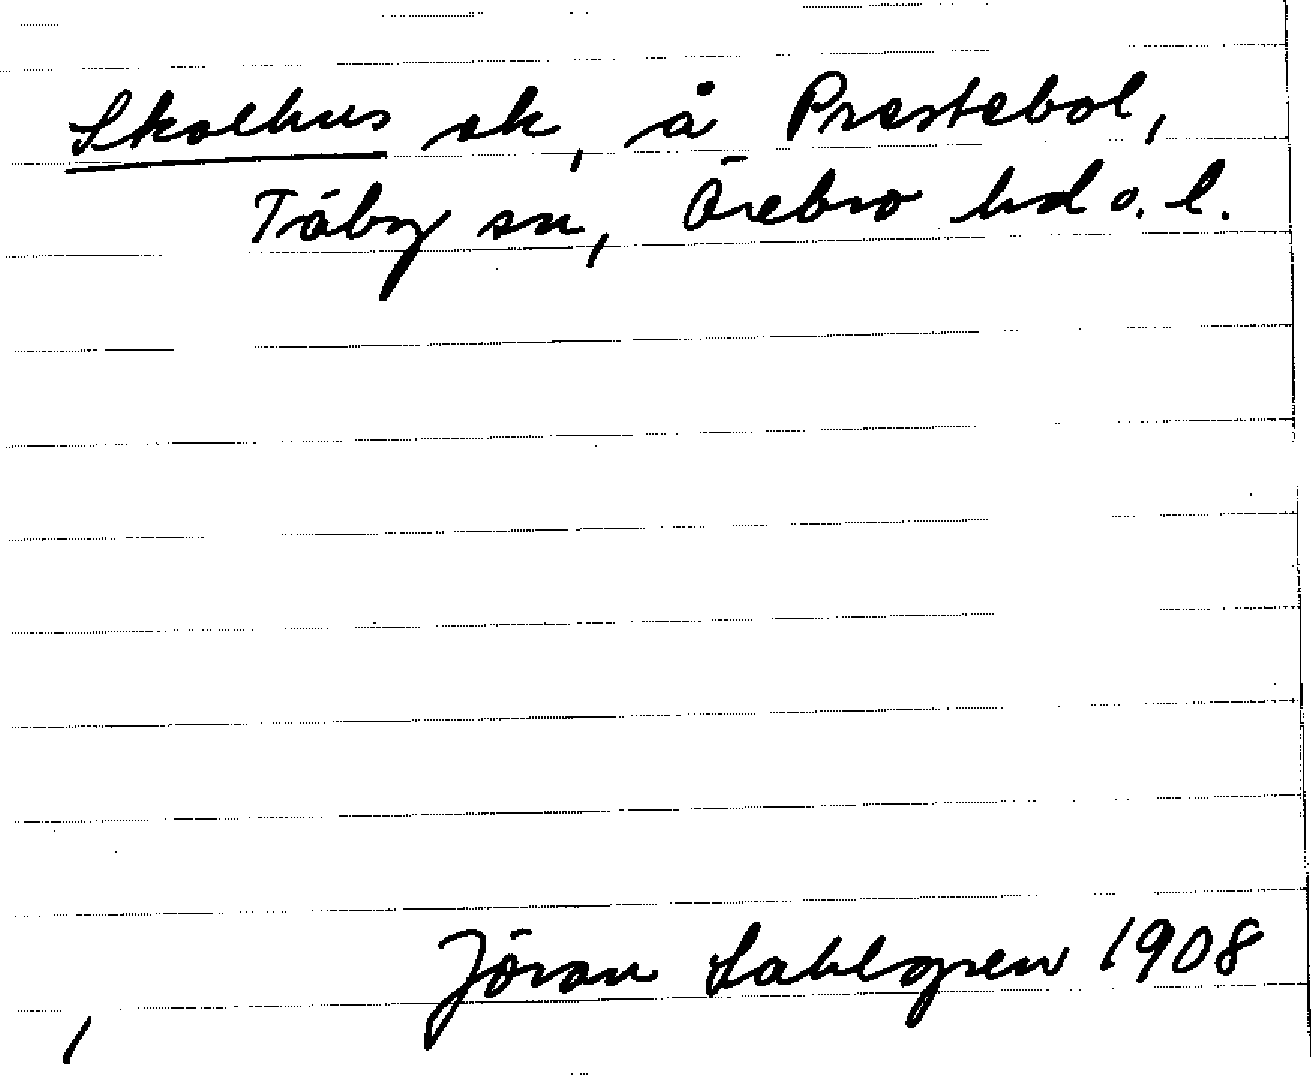 Skolhus sk, å Prästebol,
Täby sn, Örebro hd o. l.
Jöran Sahlgren 1908